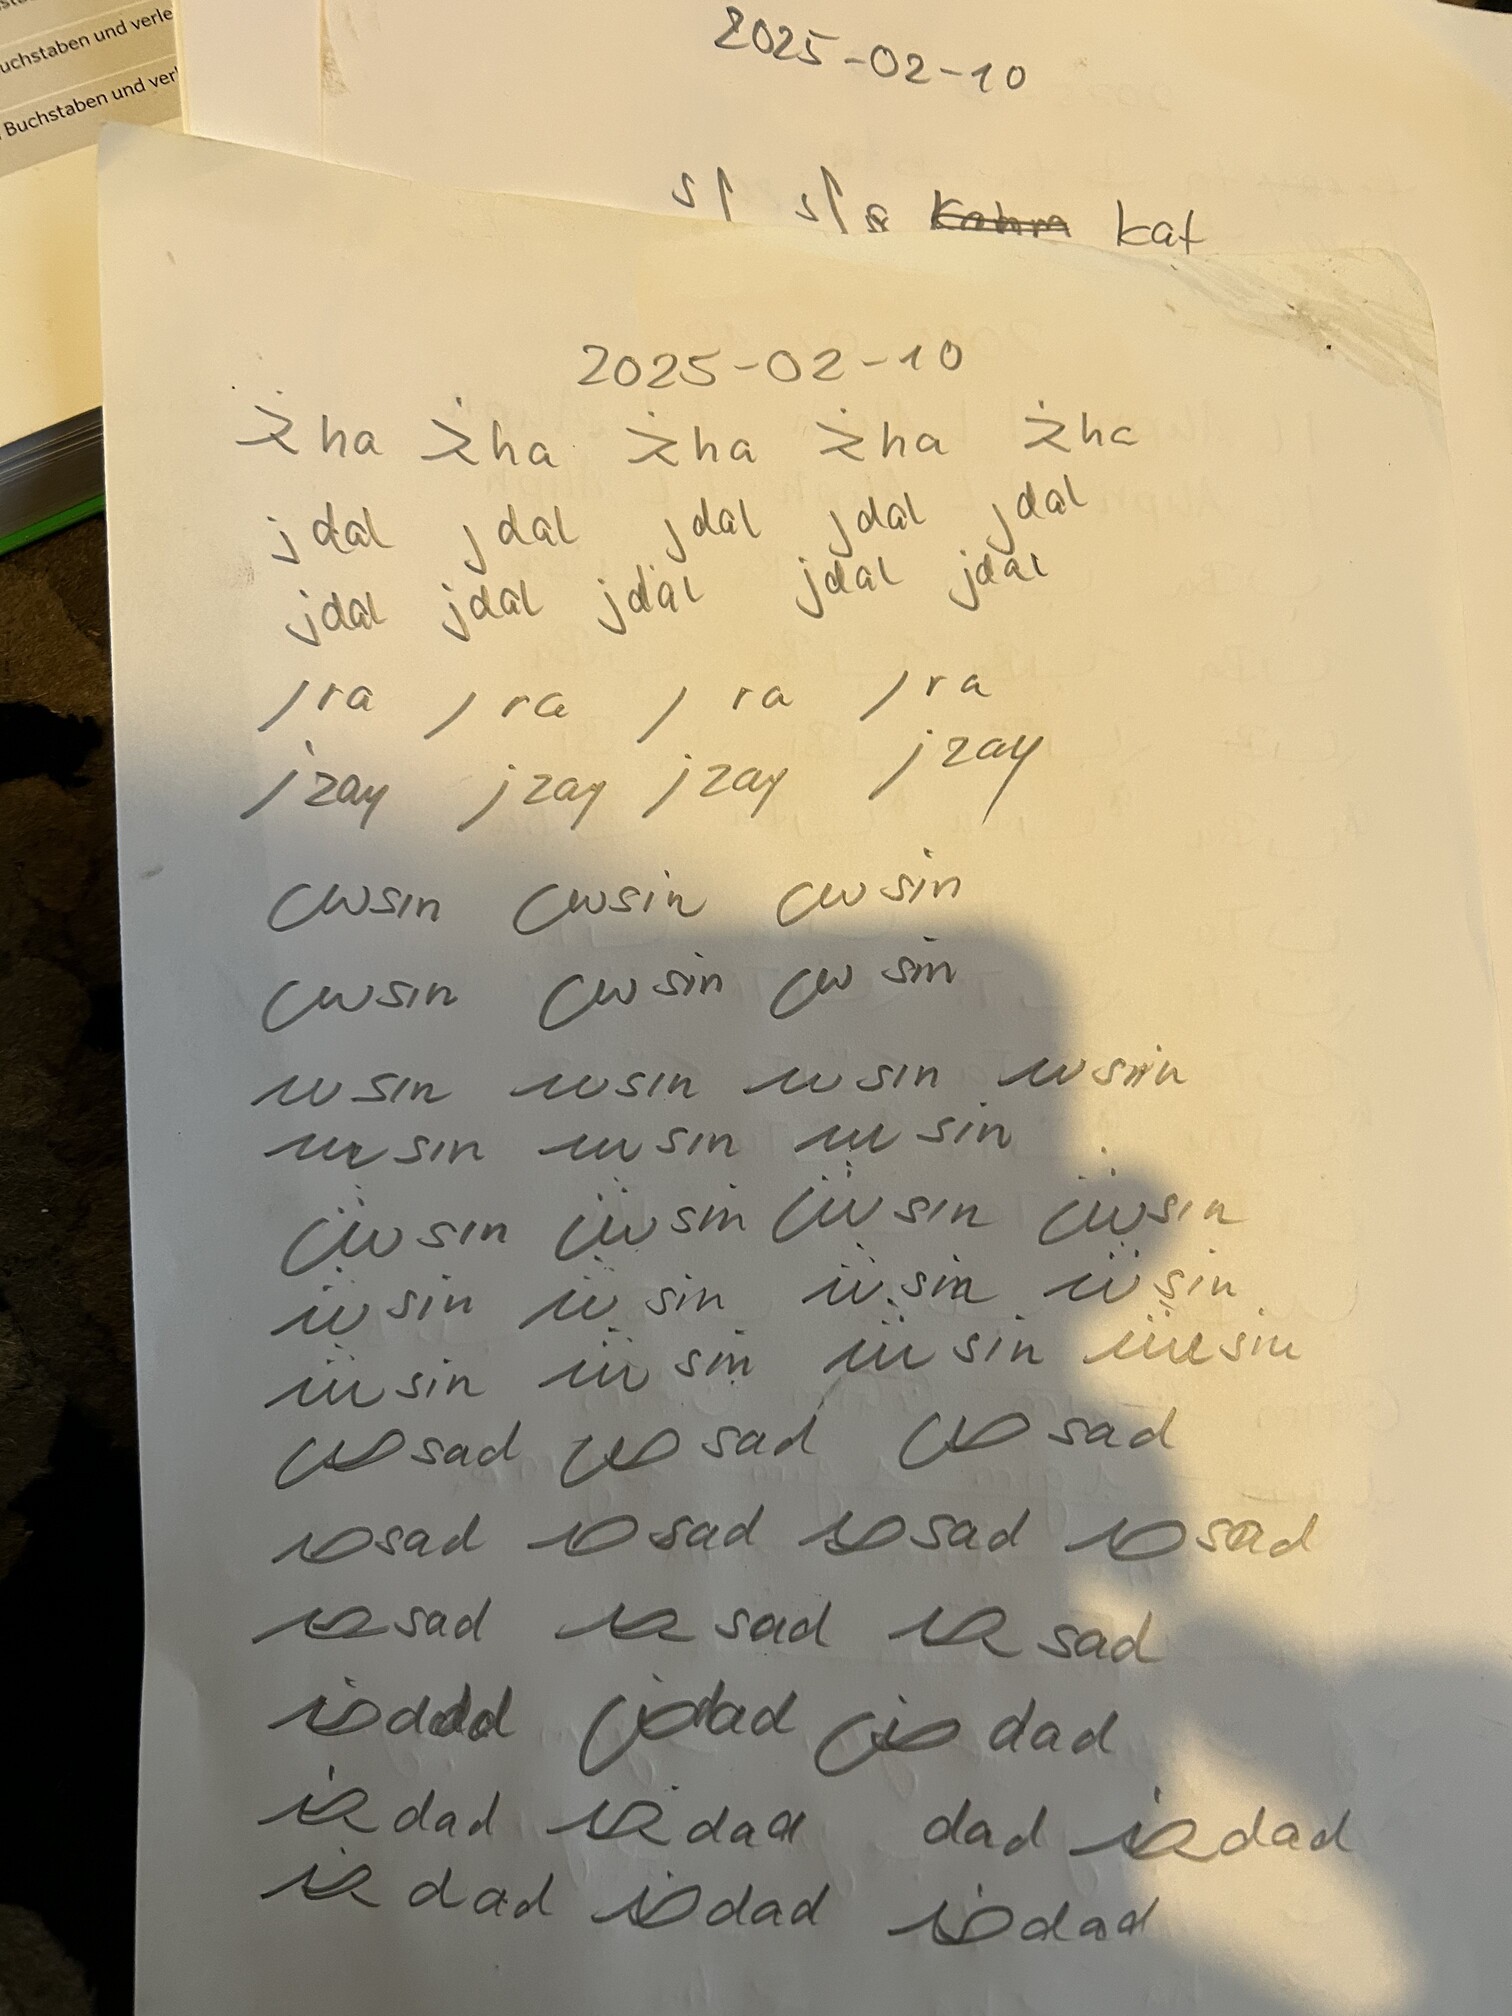 uchstaben und verle
Buchstaben und verl
2025-02-10
kat
2025-02-10
خ ha خ ha خ ha خ ha خ ha
ذ dal ذ dal ذ dal ذ dal ذ dal
ذ dal ذ dal ذ dal ذ dal ذ dal
ر ra ر ra ر ra ر ra
ز zay ز zay ز zay ز zay
س sin س sin س sin
س sin س sin س sin
سـ sin سـ sin سـ sin سـ sin
ـسـ sin ـسـ sin ـسـ sin
ش sin ش sin ش sin ش sin
شـ sin شـ sin شـ sin شـ sin
ـشـ sin ـشـ sin ـشـ sin ـشـ sin
ص sad ص sad ص sad
صـ sad صـ sad صـ sad صـ sad
ـصـ sad ـصـ sad ـصـ sad
ضـ dad ض dad ض dad
ـضـ dad ـضـ dad dad ـضـ dad
ـضـ dad ضـ dad ضـ dad